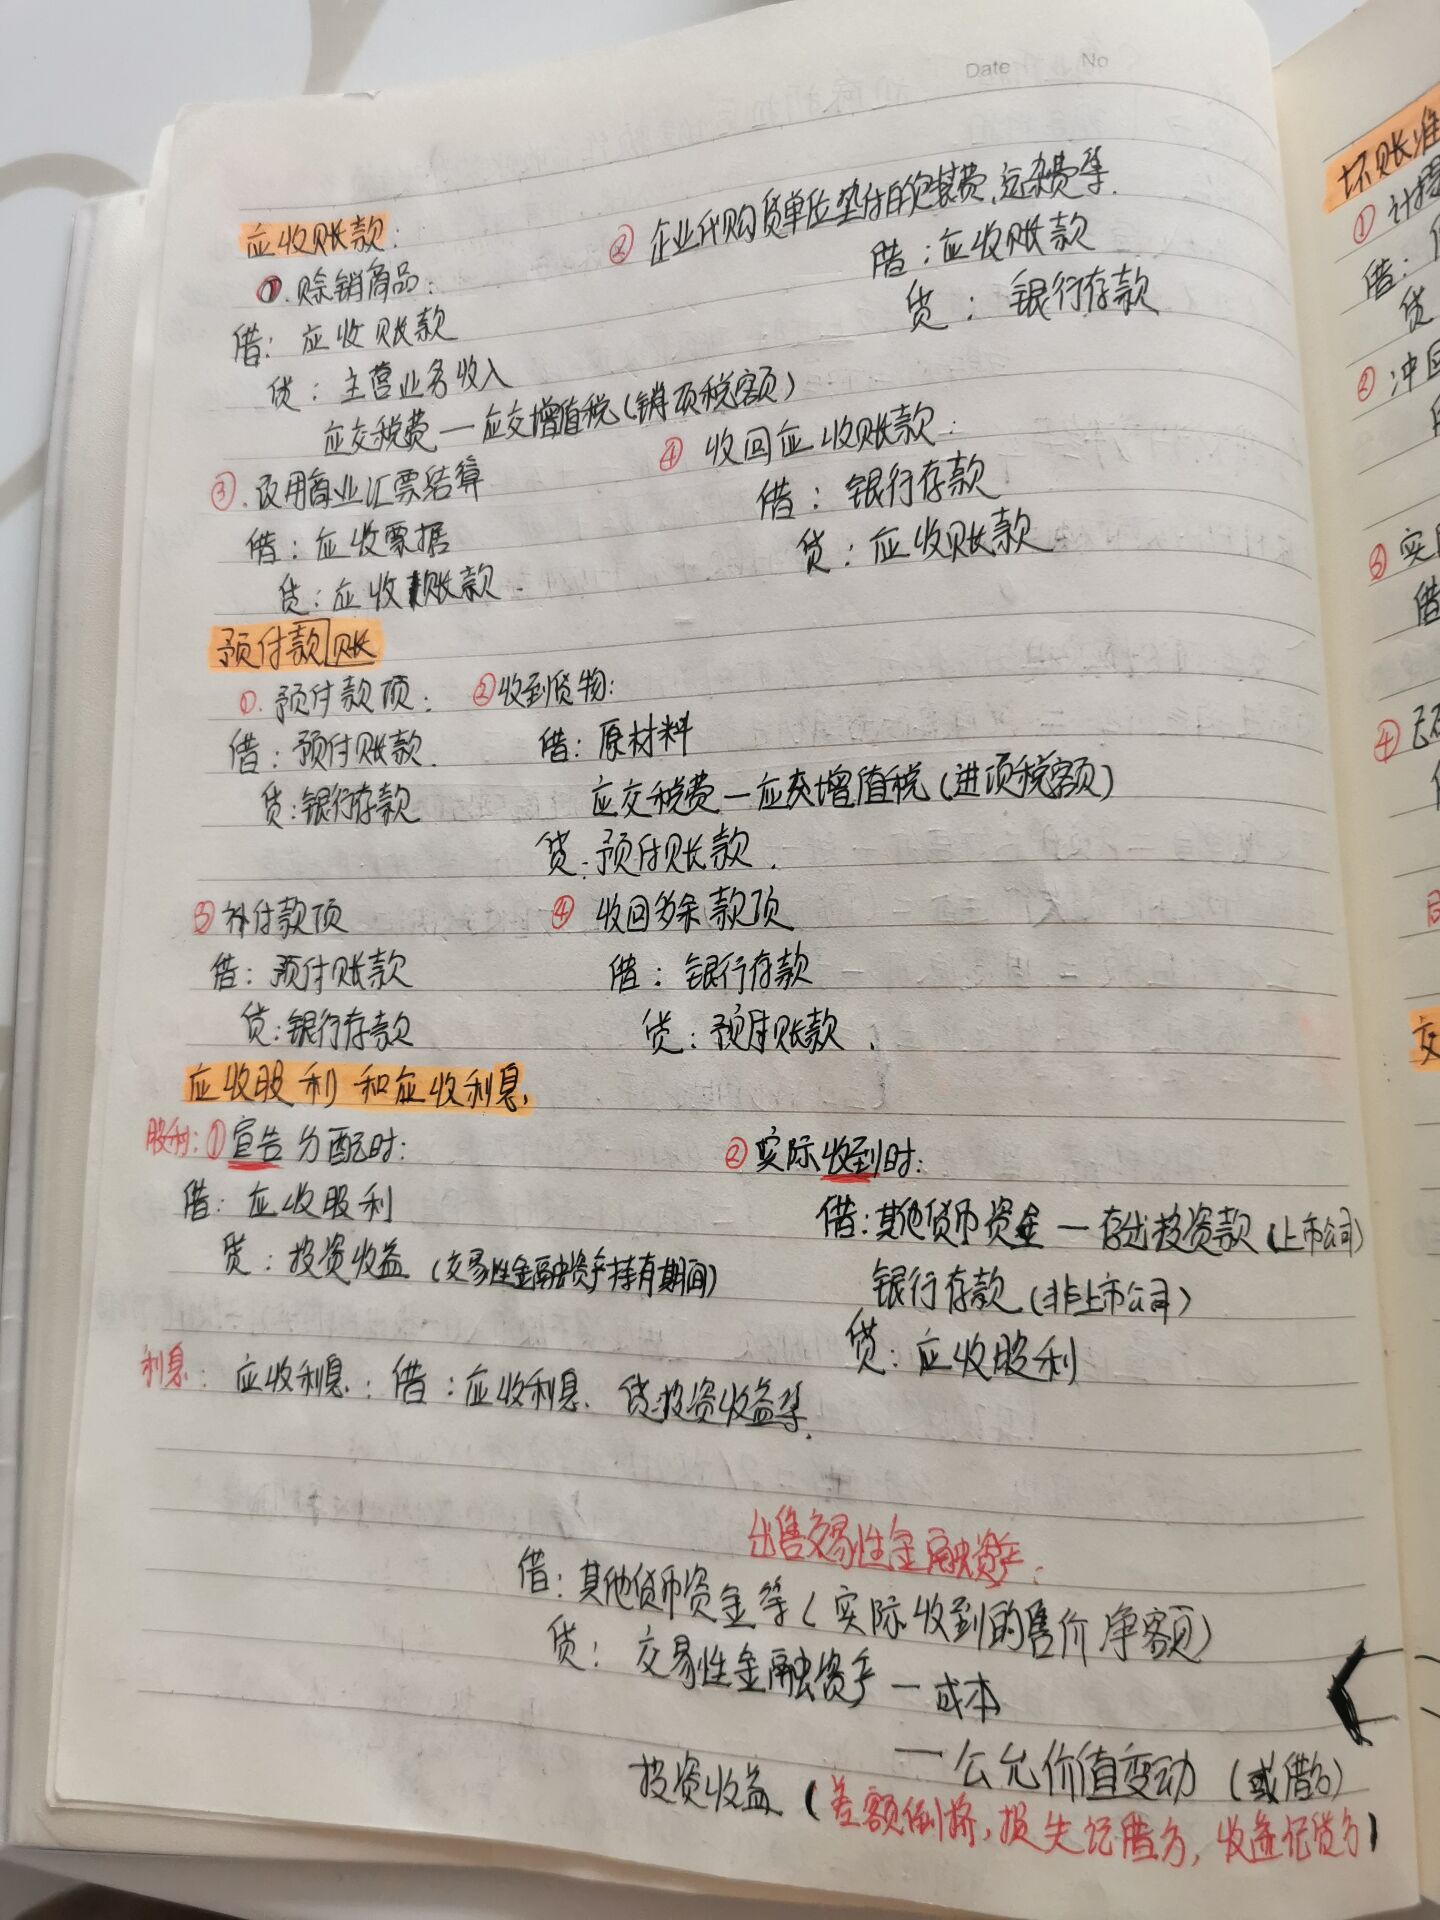 Date No
应收账款:
①.赊销商品:
借: 应收账款
贷: 主营业务收入
应交税费—应交增值税(销项税额)
② 企业代购货单位垫付的包装费、运杂费等.
借:应收账款
贷: 银行存款
③.改用商业汇票结算
借:应收票据
贷:应收账款.
④ 收回应收账款:
借: 银行存款
贷:应收账款
预付款账
①.预付款项:
借:预付账款.
贷:银行存款
②收到货物:
借:原材料
应交税费—应交增值税(进项税额)
贷.预付账款.
③补付款项
借: 预付账款
贷:银行存款
④ 收回多余款项
借: 银行存款
贷:预付账款.
应收股利和应收利息,
股利:①宣告分配时:
借: 应收股利
贷:投资收益(交易性金融资产持有期间)
②实际收到时:
借:其他货币资金—存出投资款(上市公司)
银行存款(非上市公司)
贷:应收股利
利息: 应收利息:借:应收利息. 贷:投资收益等.
出售交易性金融资产:
借:其他货币资金等(实际收到的售价净额)
贷: 交易性金融资产—成本
—公允价值变动(或借方)
投资收益(差额倒挤,损失记借方,收益记贷方)
坏账准
①计提
借:
贷
②冲
③实
借
④已
交